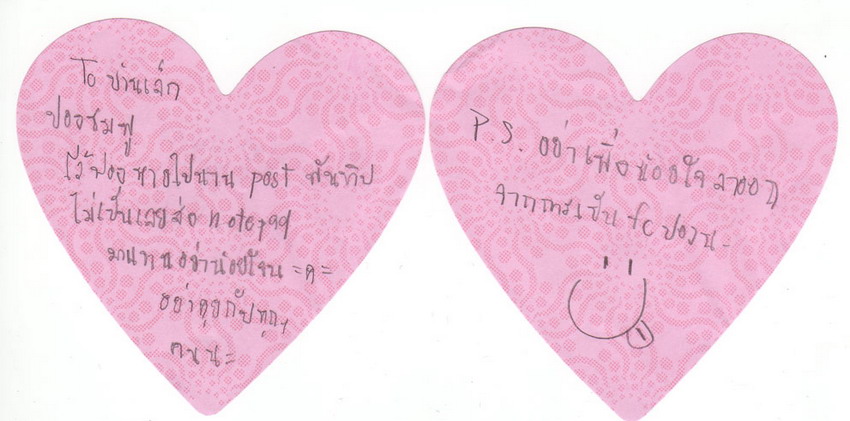 To บ้านเล็ก
ปอยชมพู
ไว้ปอยหายไปนาน post พันทิป
ไม่เป็นเลยส่ง note
มาแทน อย่าน้อยใจน =ค=
อยากคุยกับทุกๆ
คนน=
P.S. อย่าเพิ่งน้อยใจลาออก
จากการเป็น fc ปอยน=